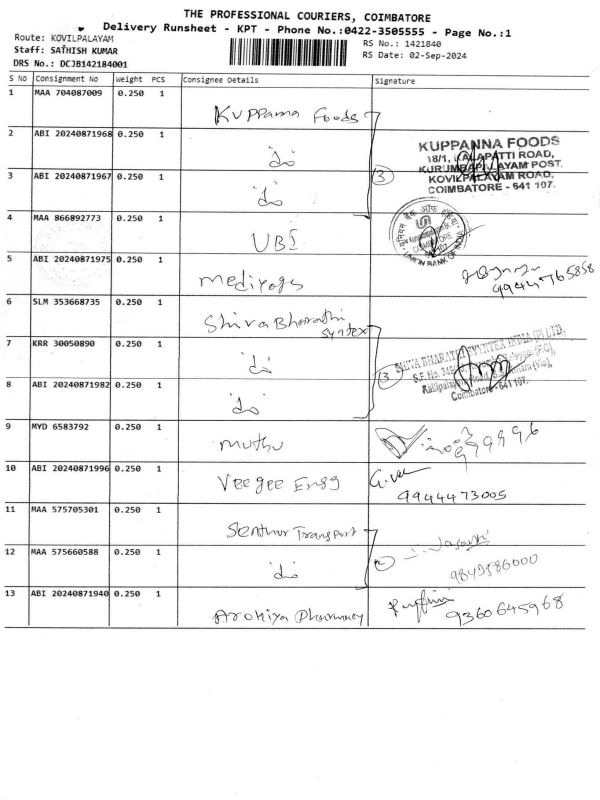 THE PROFESSIONAL COURIERS, COIMBATORE
Delivery Runsheet - KPT - Phone No.:0422-3505555 - Page No.:1
Route: KOVILPALAYAM
RS No.: 1421840
Staff: SATHISH KUMAR
RS Date: 02-Sep-2024
DRS No.: DCJB142184001
S NO Consignment No Weight PCS Consignee Details Signature
1 MAA 704087009 0.250 1 Kuppanna Foods
2 ABI 20240871968 0.250 1 do
KUPPANNA FOODS
18/1, KALAPATTI ROAD,
KURUMBAPALAYAM POST,
KOVILPALAYAM ROAD,
COIMBATORE - 641 107.
3 ABI 20240871967 0.250 1 do 3
4 MAA 866892773 0.250 1 UBI
UNION BANK OF INDIA
5 ABI 20240871975 0.250 1 mediyogs
6 SLM 353668735 0.250 1 Shiva Bharathi
Syntex
7 KRR 30050890 0.250 1 do
SHIVA BHARATHI SYNTEX INDIA (P) LTD.
Coimbatore - 641 107.
8 ABI 20240871982 0.250 1 do 3
9 MYD 6583792 0.250 1 muthu
10 ABI 20240871996 0.250 1 Veegee Engg G. Vel
9944473005
11 MAA 575705301 0.250 1 Senthur Transport
12 MAA 575660588 0.250 1 do 2
9843586000
13 ABI 20240871940 0.250 1 Arokiya Pharmacy
9360645968